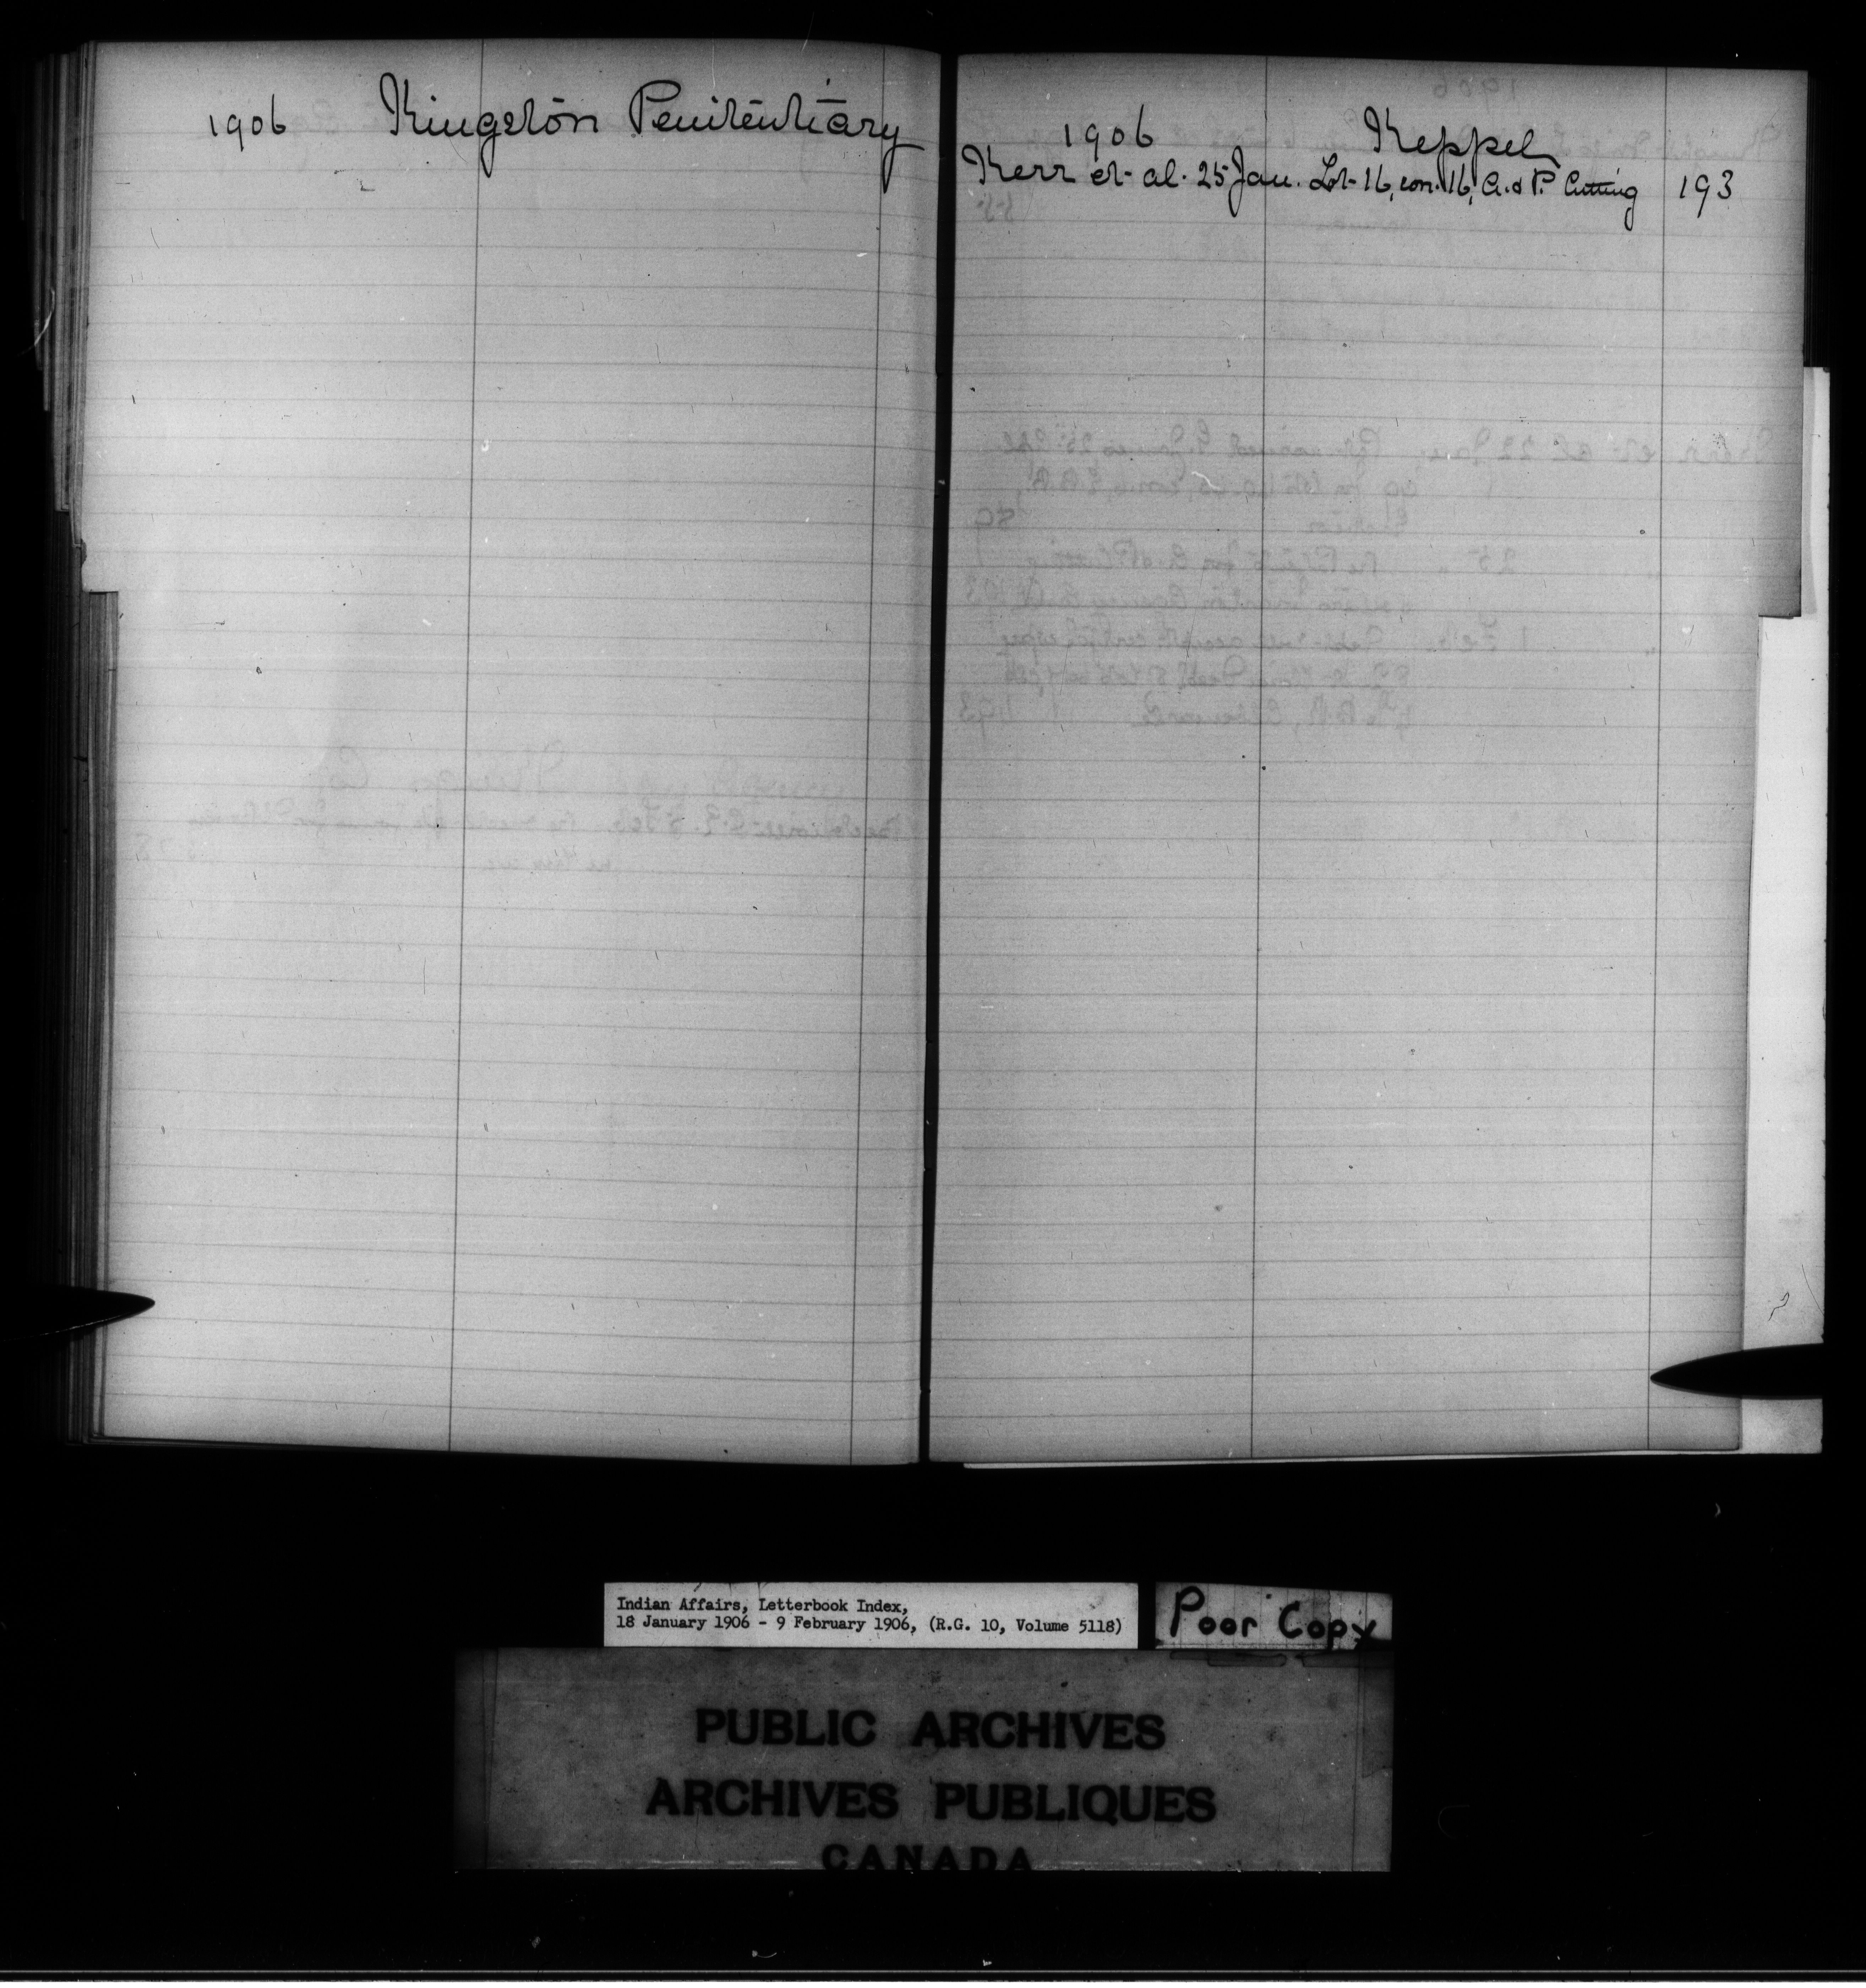 1906 Kingston Penitentiary
1906 Keppel
Kerr et al. 25 Jan. Lot 16, con. 16, A. & P. Cutting 193
Indian Affairs, Letterbook Index,
18 January 1906 - 9 February 1906, (R.G. 10, Volume 5118)
Poor Copy
PUBLIC ARCHIVES
ARCHIVES PUBLIQUES
CANADA